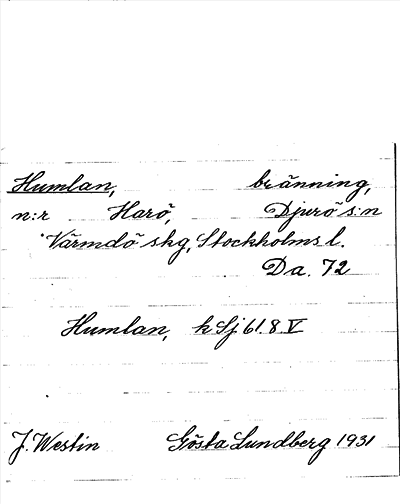 Humlan, bränning,
n:r Harö, Djurö s:n
Värmdö skg, Stockholms l.
Da. 72
Humlan, k Sj 61.8 V
J. Westin Gösta Lundberg 1931